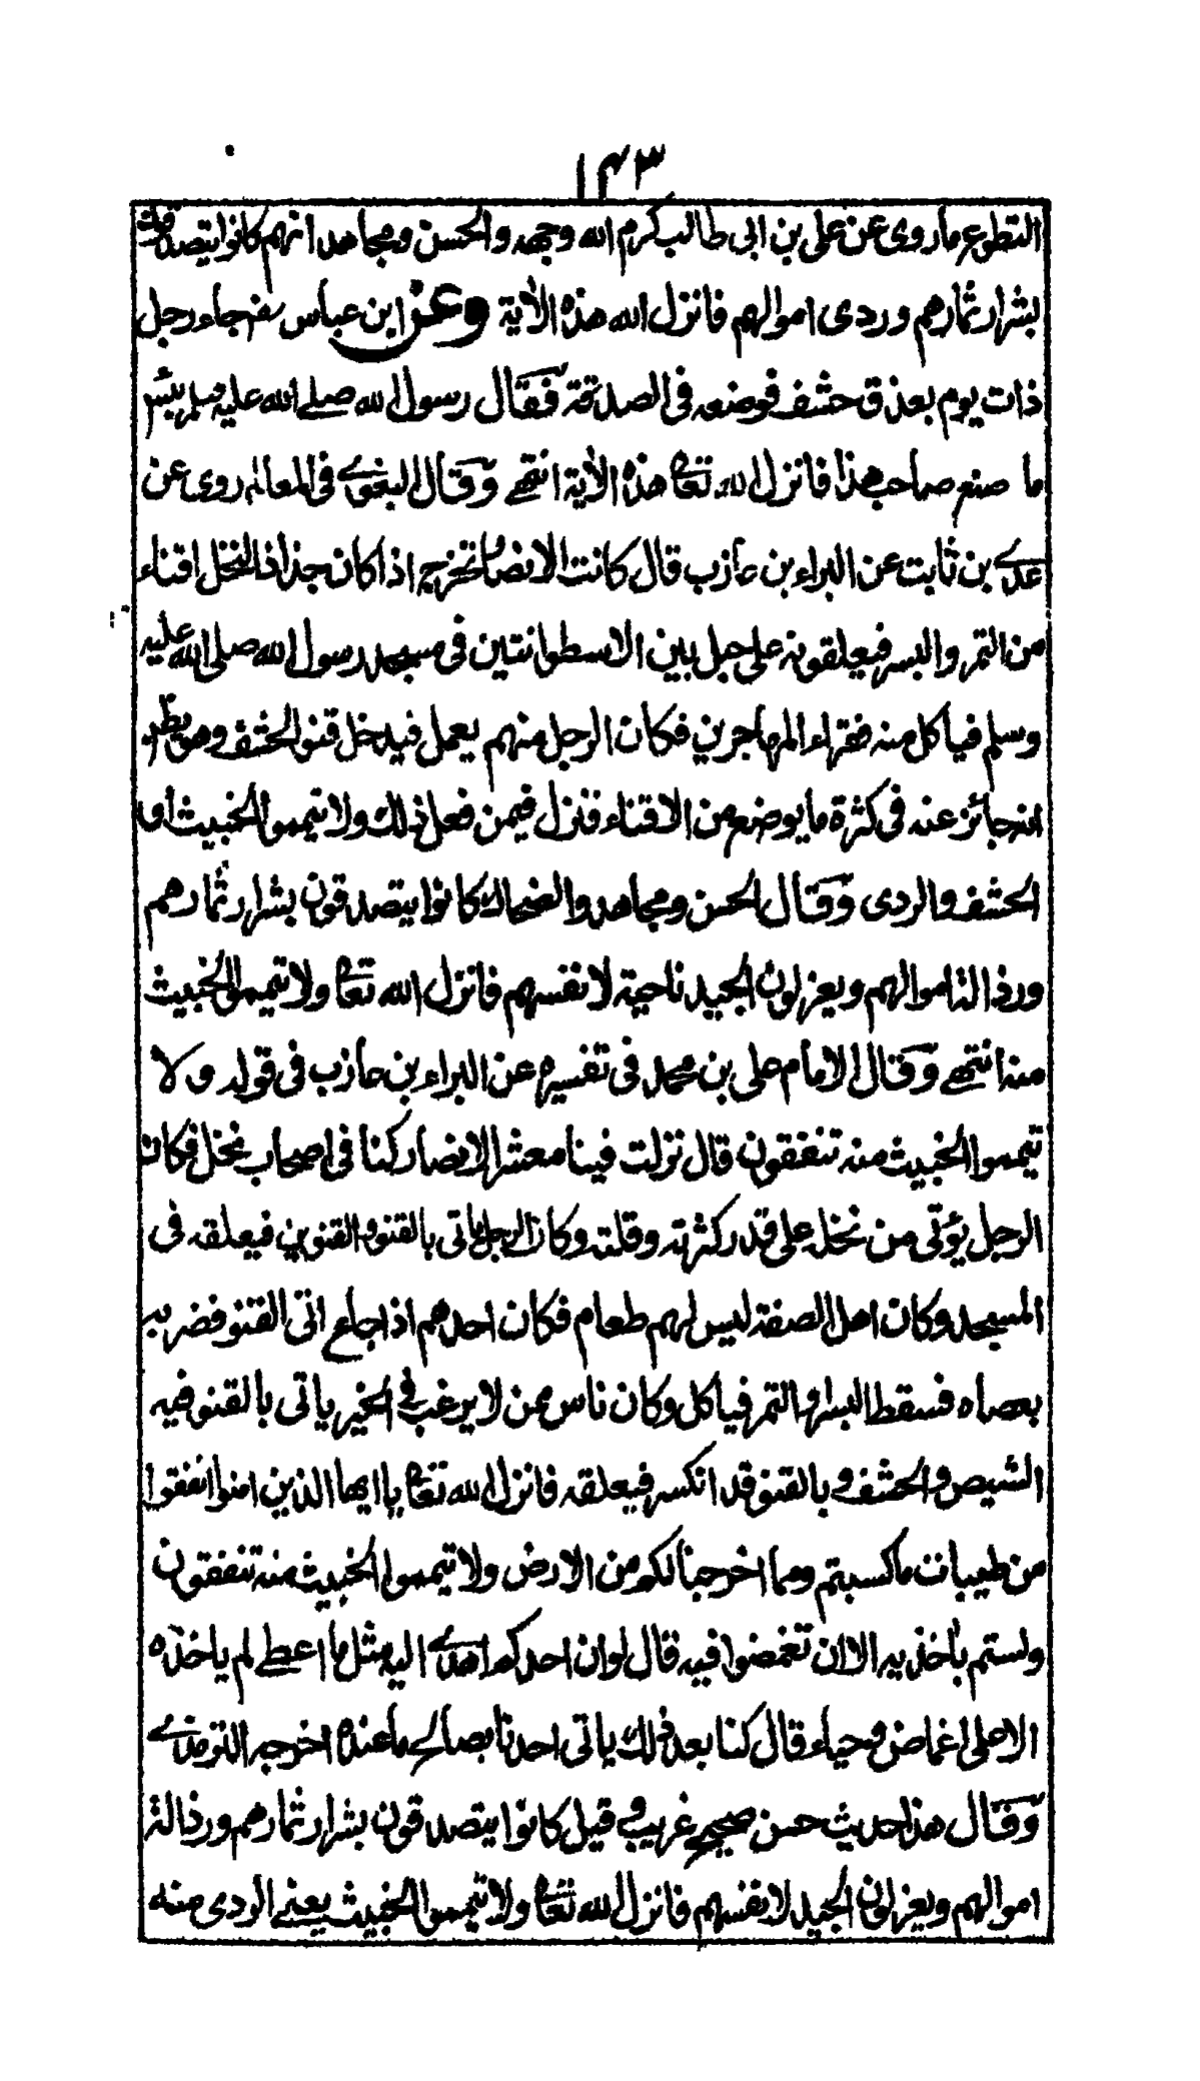 ۱۴۳
التطوع ماروی عن علی بن ابی طالب کرم الله وجهه والحسن ومجاهد انهم کانوا یتصدقون
بشرار ثمارهم وردی اموالهم فانزل الله هذه الآیة وعن ابن عباس رضـ جاء رجل
ذات یوم بعذق حشف فوضعه فی الصدقة فقال رسول الله صلی الله علیه وسلم بئس
ما صنع صاحب هذا فانزل الله تعالی هذه الآیة انتهی وقال البغوی فی المعالم روی عن
عدی بن ثابت عن البراء بن عازب قال کانت الانصار تخرج اذا کان جذاذ النخل اقناء
من التمر والبسر فیعلقونه علی حبل بین الاسطوانتین فی مسجد رسول الله صلی الله علیه
وسلم فیاکل منه فقراء المهاجرین فکان الرجل منهم یعمل فیدخل قنو الحشف وهو یظن
انه جائز عنه فی کثرة ما یوضع من الاقناء فنزل فیمن فعل ذلك ولا تیمموا الخبیث أی
الحشف والردی وقال الحسن ومجاهد والضحاك کانوا یتصدقون بشرار ثمارهم
ورذالة اموالهم ویعزلون الجید ناحیة لانفسهم فانزل الله تعالی ولا تیمموا الخبیث
منه انتهی وقال الامام علی بن محمد فی تفسیره عن البراء بن عازب فی قوله ولا
تیمموا الخبیث منه تنفقون قال نزلت فینا معشر الانصار کنا فی اصحاب نخل فکان
الرجل یؤتی من نخله علی قدر کثرته وقلته وکان الرجل یاتی بالقنو والقنوین فیعلقه فی
المسجد وکان اهل الصفة لیس لهم طعام فکان احدهم اذا جاع اتی القنو فضربه
بعصاه فسقط البسر والتمر فیاکل وکان ناس ممن لا یرغب فی الخیر یاتی بالقنو فیه
الشیص والحشف وبالقنو قد انکسر فیعلقه فانزل الله تعالی یا ایها الذین امنوا انفقوا
من طیبات ما کسبتم ومما اخرجنا لکم من الارض ولا تیمموا الخبیث منه تنفقون
ولستم بأخذیه الا ان تغمضوا فیه قال لو ان احدکم اهدی الیه مثل ما اعطی لم یاخذه
الا علی اغماض وحیاء قال کنا بعد ذلك یاتی احدنا بصالح ما عنده اخرجه الترمذی
وقال هذا حدیث حسن صحیح غریب وقیل کانوا یتصدقون بشرار ثمارهم ورذالة
اموالهم ویعزلون الجید لانفسهم فانزل الله تعالی ولا تیمموا الخبیث یعنی الردی منه